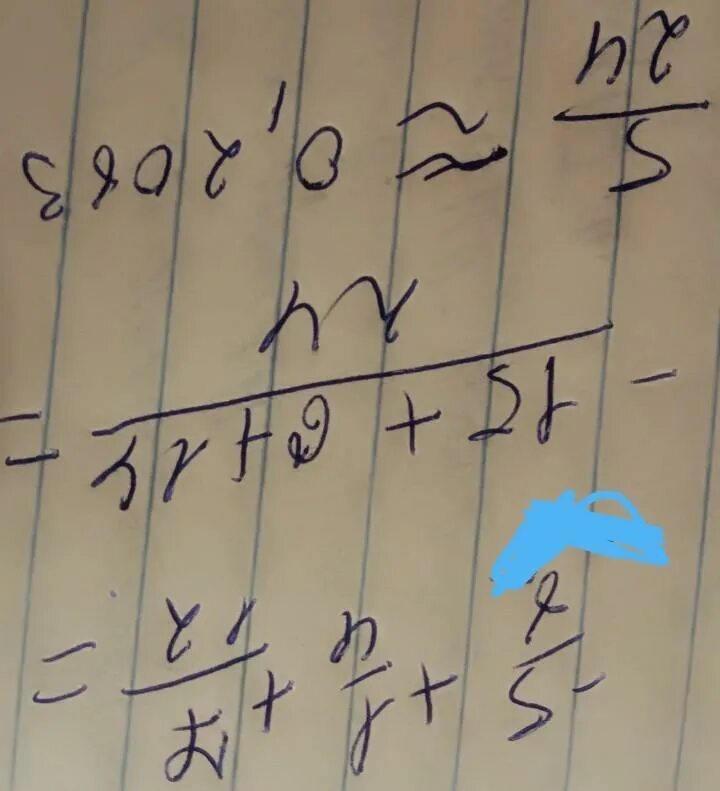 -5/8 + 1/4 + 7/12 =
(-15 + 6 + 14)/24 =
5/24 ≈ 0,2083